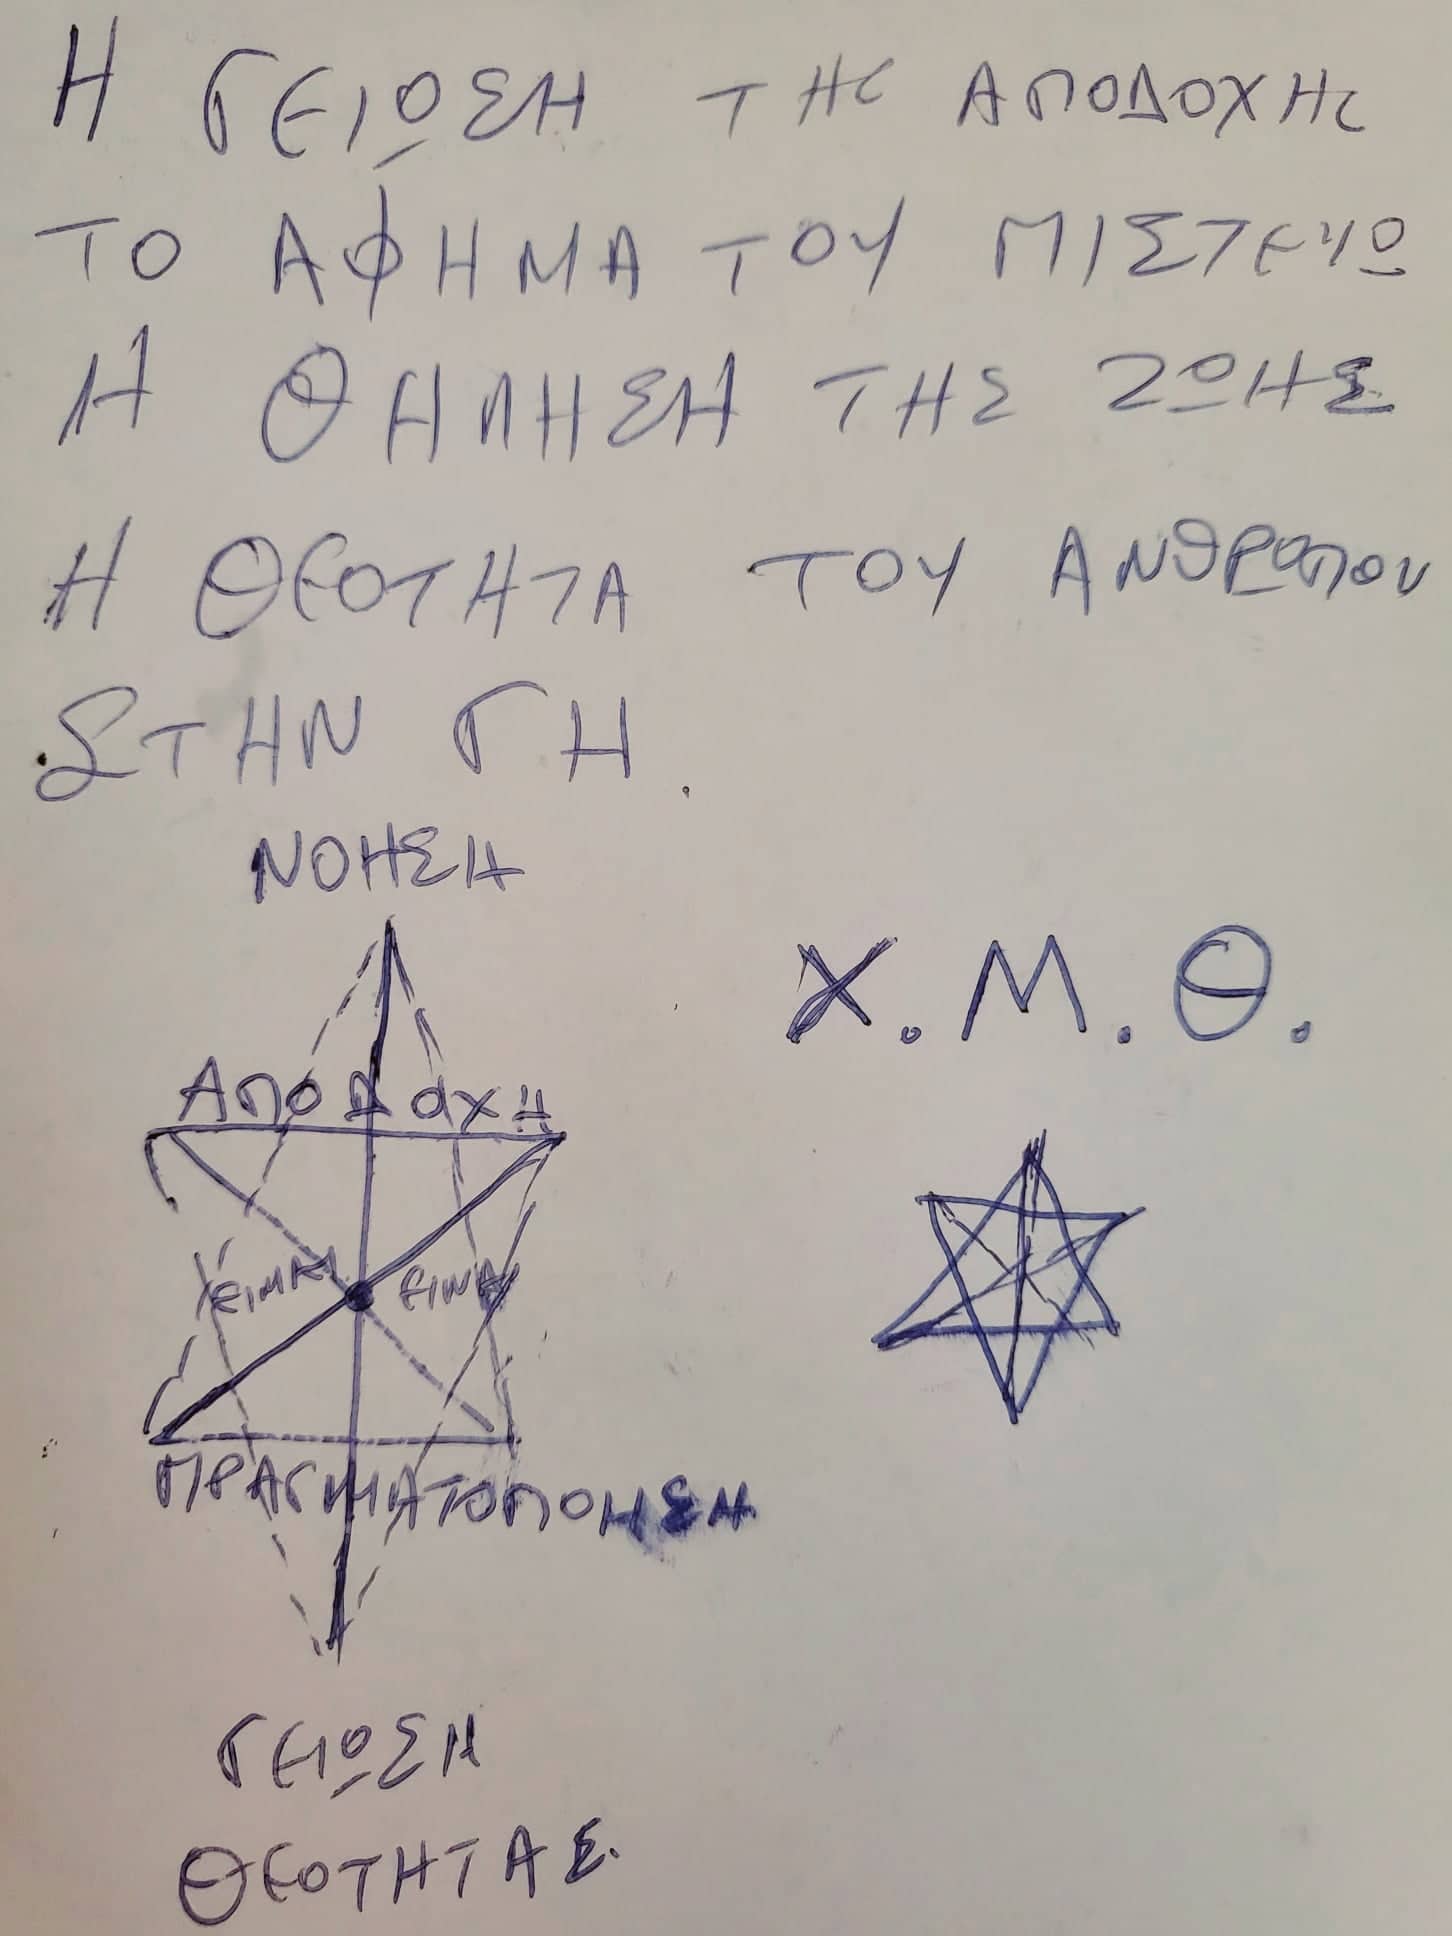 Η ΓΕΙΩΣΗ ΤΗΣ ΑΠΟΔΟΧΗΣ
ΤΟ ΑΦΗΜΑ ΤΟΥ ΠΙΣΤΕΥΩ
Η ΘΗΛΗΣΗ ΤΗΣ ΖΩΗΣ
Η ΘΕΟΤΗΤΑ ΤΟΥ ΑΝΘΡΩΠΟΥ
ΣΤΗΝ ΓΗ.
ΝΟΗΣΗ
Χ.Μ.Θ.
ΑΠΟΔΟΧΗ
ΕΙΜΑΙ ΕΙΝΑΙ
ΠΡΑΓΜΑΤΟΠΟΗΣΗ
ΓΕΙΩΣΗ
ΘΕΟΤΗΤΑΣ.